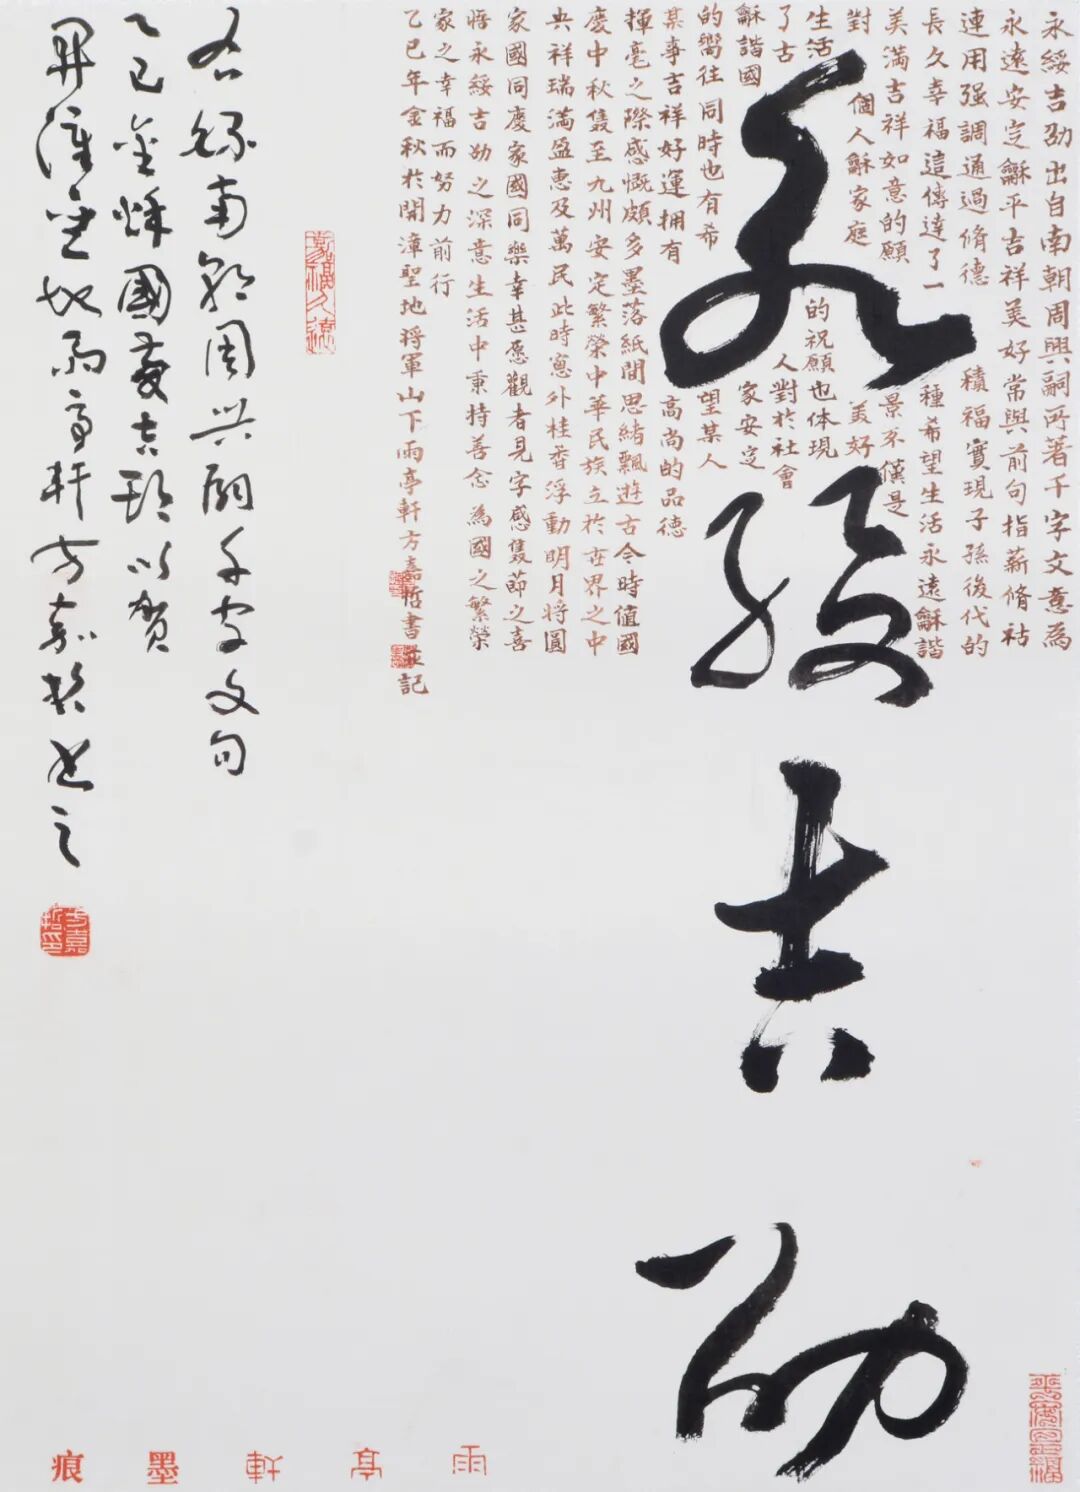 永綏吉劭
永綏吉劭出自南朝周興嗣所著千字文意為
永遠安定龢平吉祥美好常與前句指薪脩祜
連用强調通過脩德積福實現子孫後代的
長久幸福這傳達了一種希望生活永遠龢諧
美滿吉祥如意的願景不僅是
對個人龢家庭美好
生活的祝願也体現
了古人對於社會
龢諧國家安定
的嚮往同時也有希望某人
某事吉祥好運拥有高尚的品德
揮毫之際感慨頗多墨落紙間思緒飄遊古今時值國
慶中秋隻至九州安定繁榮中華民族立於世界之中
央祥瑞滿盈惠及萬民此時窓外桂香浮動明月将圓
家國同慶家國同樂幸甚愿觀者見字感隻節之喜
悟永綏吉劭之深意生活中秉持善念為國之繁榮
家之幸福而努力前行
乙巳年金秋於開漳聖地将軍山下雨亭軒方嘉哲書並記
右錄南朝周興嗣千字文句
乙巳金秋國慶吉期以賀
開漳聖地雨亭軒方嘉哲書之
方嘉哲印
雨亭軒墨痕